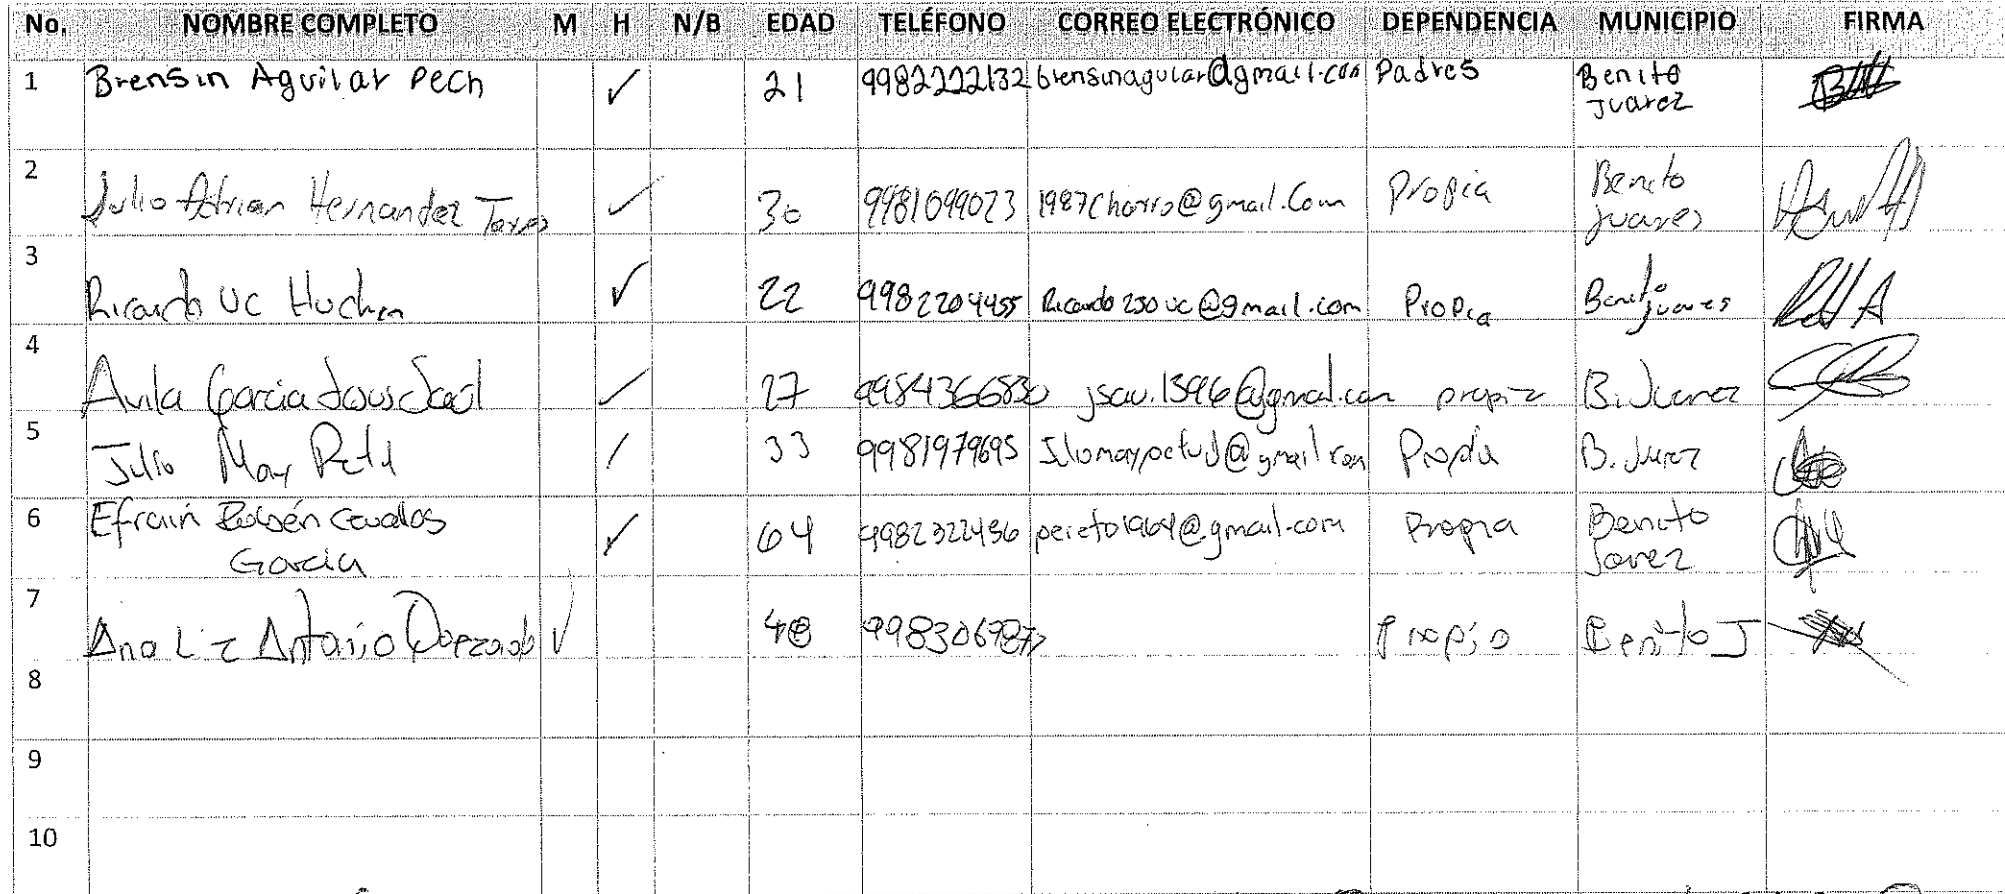 No. NOMBRE COMPLETO M H N/B EDAD TELÉFONO CORREO ELECTRÓNICO DEPENDENCIA MUNICIPIO FIRMA
1 Brensin Aguilar Pech ✓ 21 9982222132 brensinaguilar@gmail.com Padres Benito
Juarez
2 Julio Adrian Hernandez Torres ✓ 30 9981099073 1987Charro@gmail.Com Propia Benito
juares
3 Ricardo UC Huchin ✓ 22 9982204455 Ricardo250uc@gmail.com Propia Benito
juares
4 Avila Garcia ✓ 27 9984366830 propia B. Juarez
5 Julio May / 33 9981979695 Propia B.
6 Efrain Rubén Cevallos ✓ 64 9982322456 pereto1964@gmail.com Propia Benito
Garcia Jarez
7 Ana Liz Antonio ✓ Propio Benito J
8
9
10